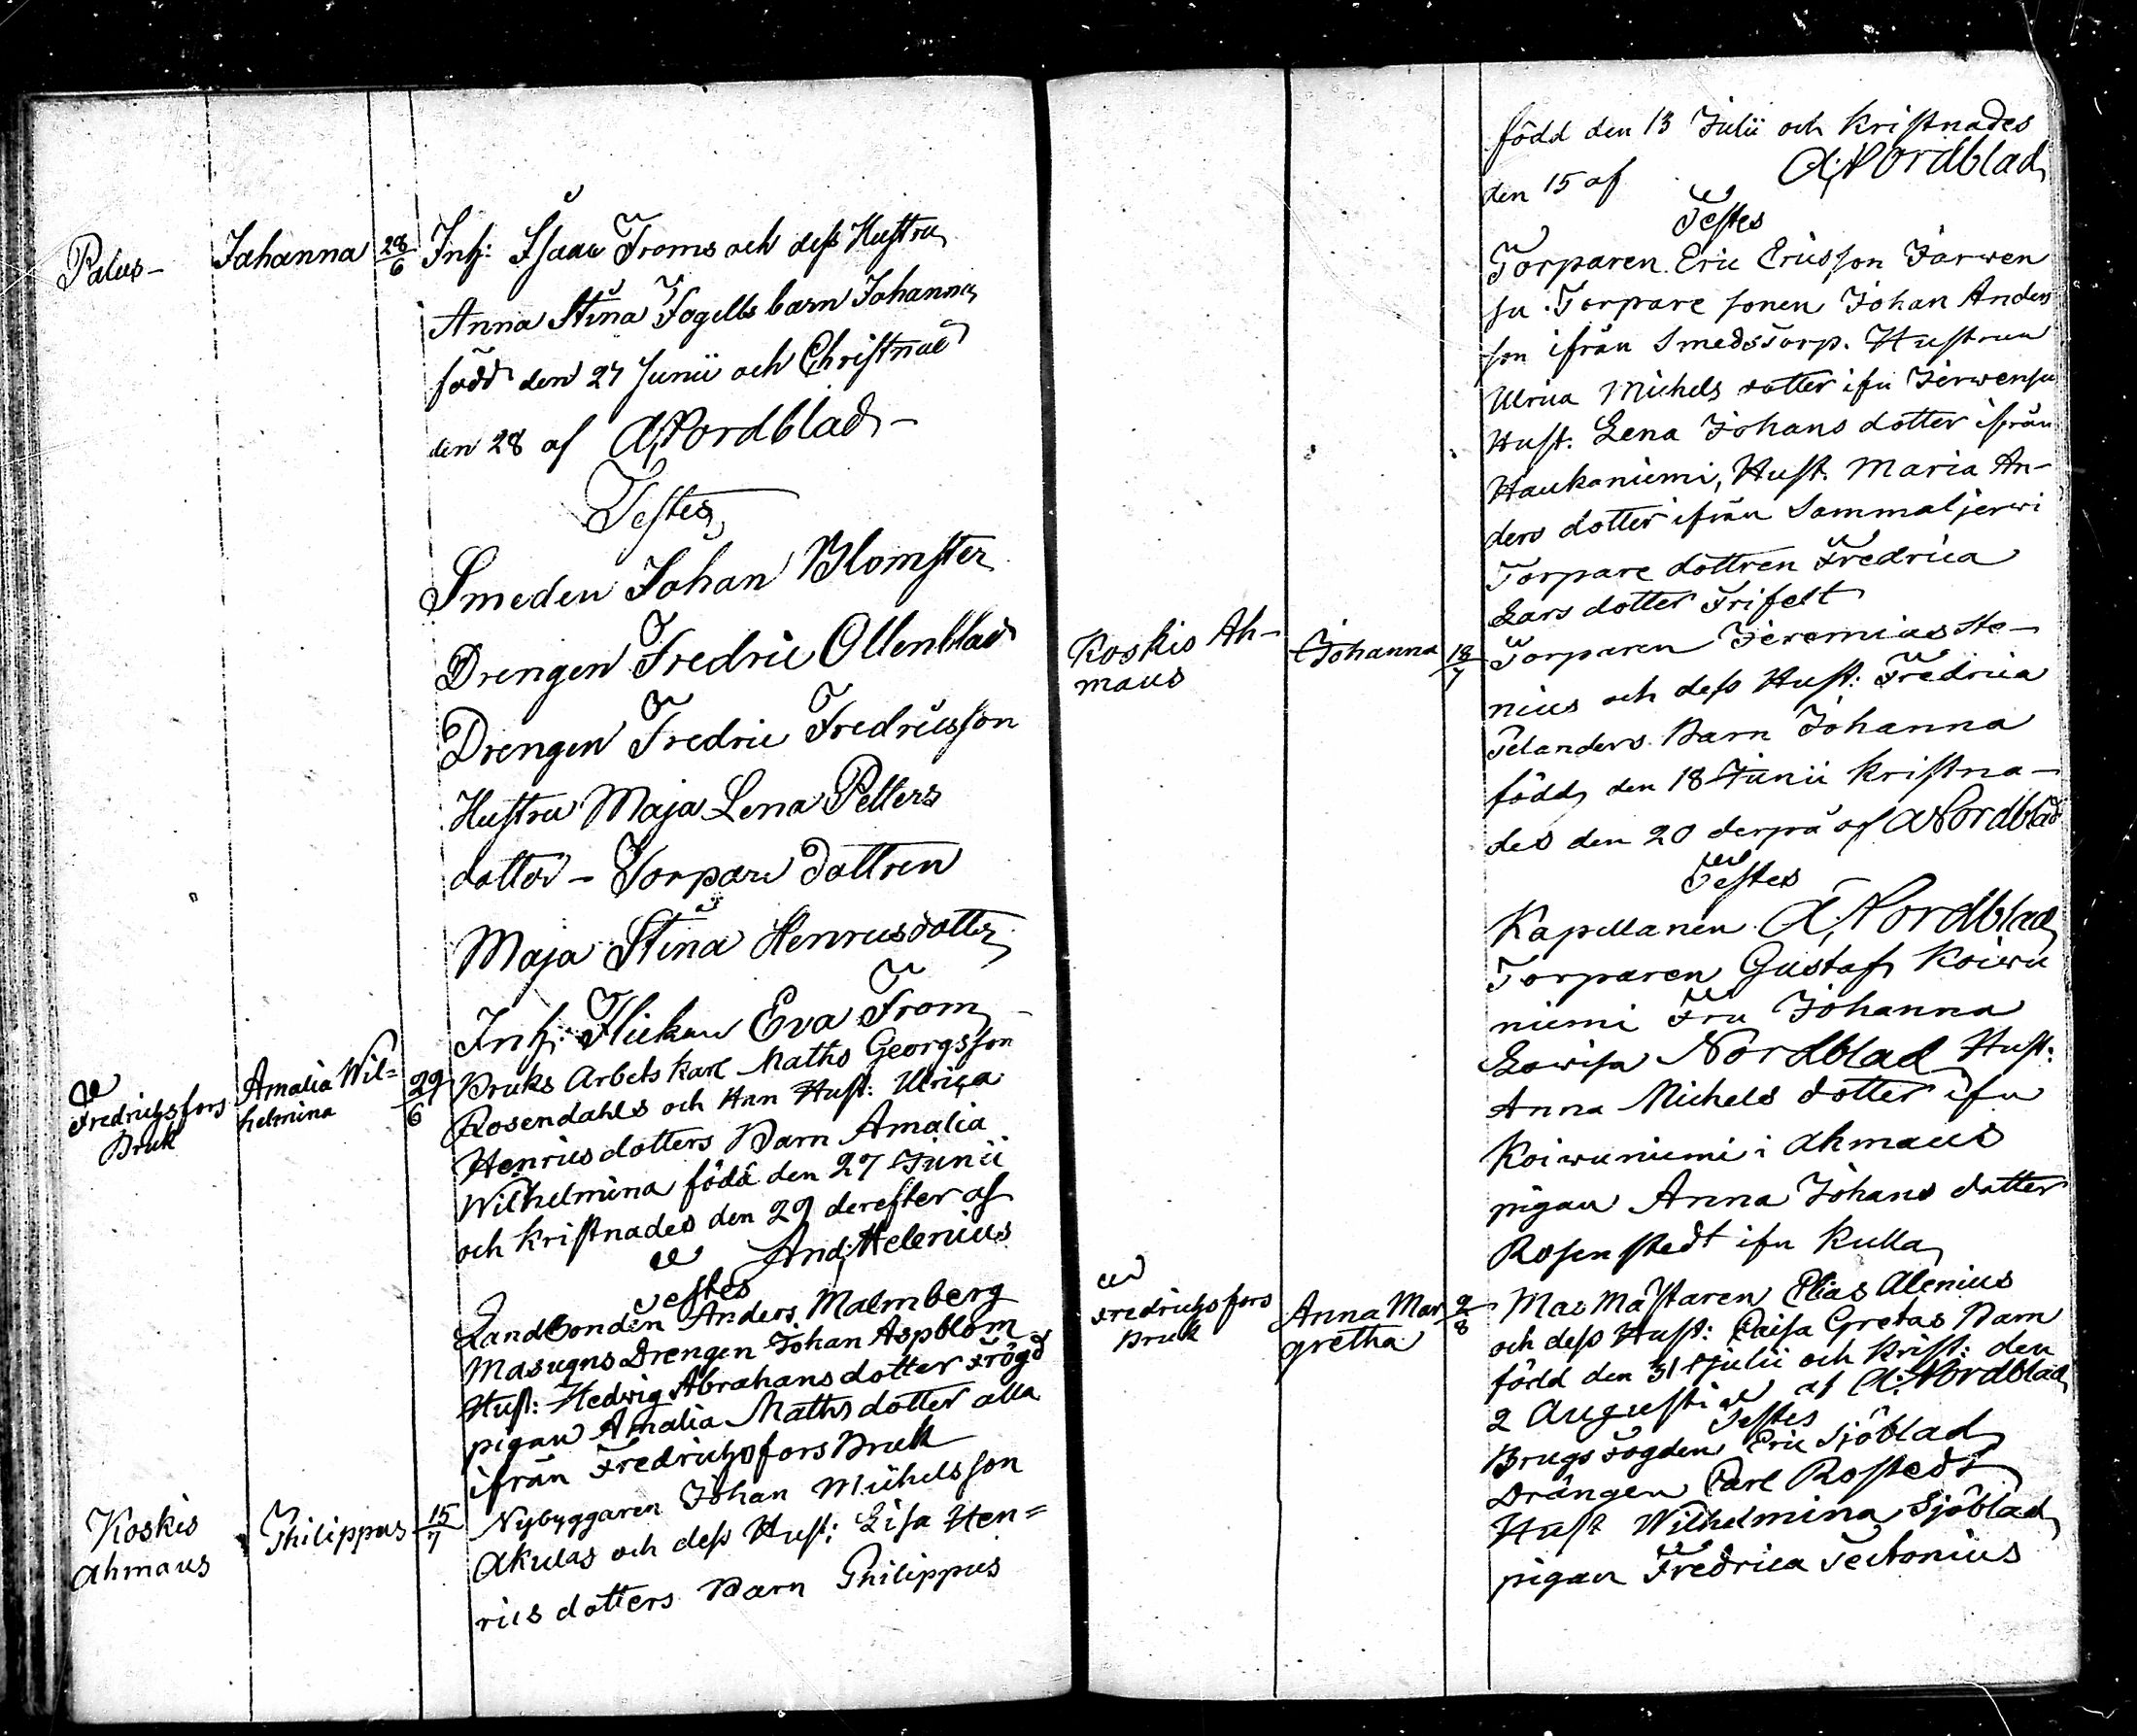 Palus-
Johanna 28/6
Inh: Isaac Froms och dess Hustru
Anna Stina Fogells barn Johanna
född den 27 Junii och Christnad
den 28 af A; Nordblad -
Testes
Smeden Johan Blomster
Drengen Fredric Ollenblad
Drengen Fredric Fredricsson
Hustru Maja Lena Petters
dotter - Torpare Dottren
Maja Stina Henricsdotter
Inh: Flickan Eva From
Fredrichsfors
Bruk
Amalia Wil=
helmina
29/6
Bruks Arbets Karl Maths Georgsson
Rosendahls och Han Hust: Ulrica
Henricsdotters Barn Amalia
Wilhelmina född den 27 Junii
och kristnades den 29 derefter af
And; Helenius
Testes
Landbonden Anders Malmberg
Masugns Drengen Johan Aspblom
Hust: Hedwig Abrahansdotter Frögd
pigan Amalia Maths dotter alla
ifrån Fredrichsfors Bruk
Koskis
Ahmaus
Philippus 15/7
Nybyggaren Johan Michelsson
Akulas och dess Hust: Lisa Hen=
rics dotters Barn Philippus
född den 13 Julii och Kristnades
den 15 af A; Nordblad
Testes
Torparen Eric Ericsson Jarwen
su Torpare sonen Johan Anders
son ifrån Smedstorp. Hustrun
Ulrica Michels dotter ifn Jerwensu
Hust: Lena Johans dotter ifrån
Haukaniemi, Hust. Maria An-
ders dotter ifrån Sammaljerwi
Torpare dottren Fredrica
Lars dotter Frifelt
Koskis Ah-
maus
Johanna 18/7
Torparen Jeremias He-
nius och dess Hust: Fredrica
Pelanders Barn Johanna
född den 18 Junii Kristna-
des den 20 derpå af A Nordblad
Testes
Kapellanen A; Nordblad
Torparen Gustaf Koiwu
niemi Fru Johanna
Lowisa Nordblad Hust:
Anna Michels dotter ifn
Koiwuniemi i Ahmaus
pigan Anna Johans dotter
Rosenstedt ifn Kulla
Fredrichsfors
Bruk
Anna Mar
gretha
2/8
Mas Mästaren Elias Alenius
och dess Hust: Caisa Gretas Barn
född den 31 Julii och krist: den
2 Augusti af A: Nordblad
Testes
Brugs Fogden Eric Sjöblad
Drängen Carl Rostedt
Hust Wilhelmina Sjöblad
pigan Fredrica Tectonius